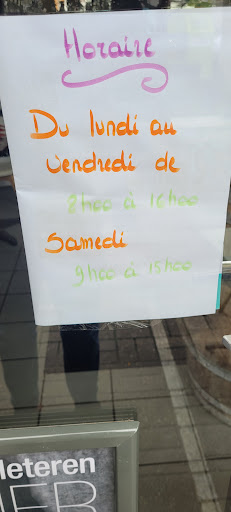 Horaire
Du lundi au
vendredi de
8h00 à 16h00
Samedi
9h00 à 15h00
leteren
IER